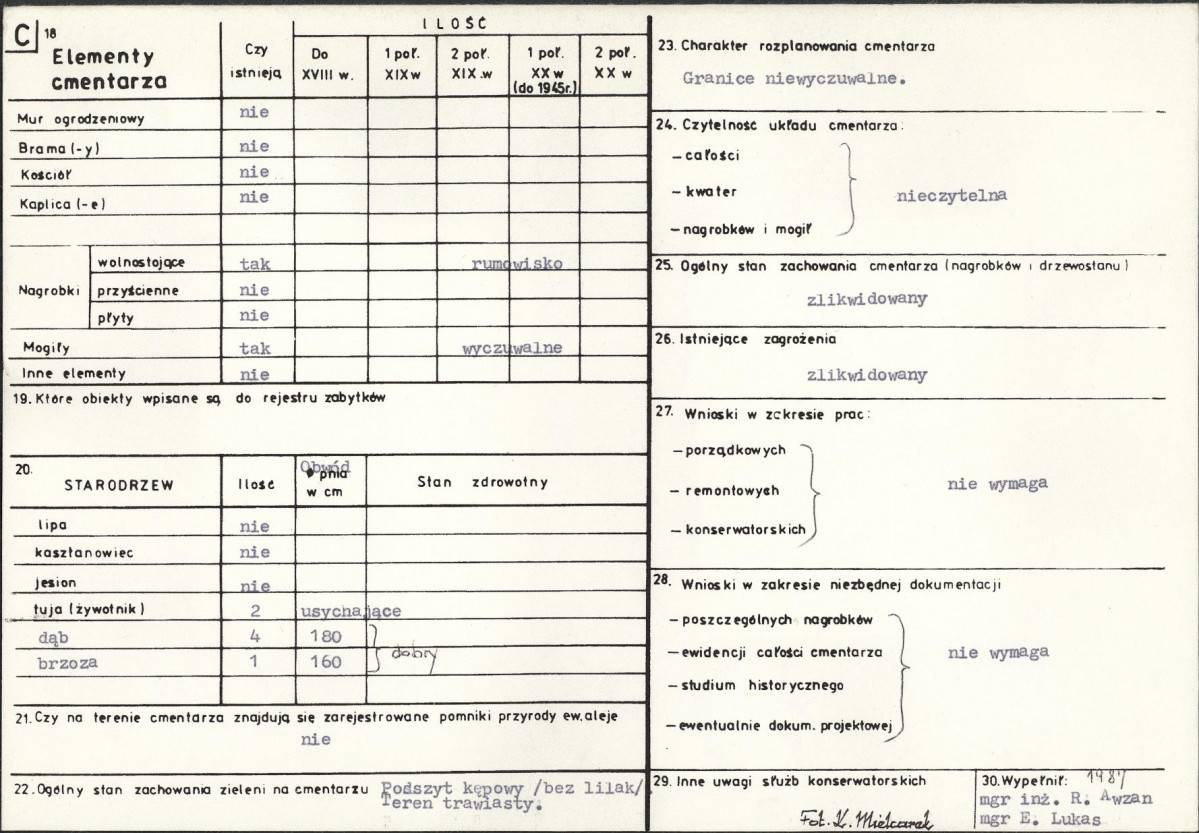 C 18
Elementy cmentarza
Czy istnieją
ILOŚĆ
Do XVIII w.
1 poł. XIX w
2 poł. XIX w
1 poł. XX w (do 1945r.)
2 poł. XX w
Mur ogrodzeniowy nie
Brama (-y) nie
Kościół nie
Kaplica (-e) nie
Nagrobki
wolnostojące tak rumowisko
przyścienne nie
płyty nie
Mogiły tak wyczuwalne
Inne elementy nie
19. Które obiekty wpisane są do rejestru zabytków
20. STARODRZEW Ilość Obwód pnia w cm Stan zdrowotny
lipa nie
kasztanowiec nie
jesion nie
tuja (żywotnik) 2 usychające
dąb 4 180 dobry
brzoza 1 160
21. Czy na terenie cmentarza znajdują się zarejestrowane pomniki przyrody ew. aleje
nie
22. Ogólny stan zachowania zieleni na cmentarzu Podszyt kępowy /bez lilak/
Teren trawiasty.
23. Charakter rozplanowania cmentarza
Granice niewyczuwalne.
24. Czytelność układu cmentarza:
– całości
– kwater nieczytelna
– nagrobków i mogił
25. Ogólny stan zachowania cmentarza (nagrobków i drzewostanu)
zlikwidowany
26. Istniejące zagrożenia
zlikwidowany
27. Wnioski w zakresie prac:
– porządkowych
– remontowych nie wymaga
– konserwatorskich
28. Wnioski w zakresie niezbędnej dokumentacji
– poszczególnych nagrobków
– ewidencji całości cmentarza nie wymaga
– studium historycznego
– ewentualnie dokum. projektowej
29. Inne uwagi służb konserwatorskich
Fot. K. Mielcarek
30. Wypełnił: 1987
mgr inż. R. Awzan
mgr E. Lukas